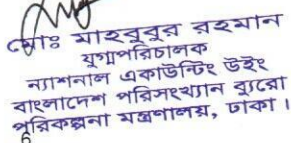 মোঃ মাহবুবুর রহমান
যুগ্মপরিচালক
ন্যাশনাল একাউন্টিং উইং
বাংলাদেশ পরিসংখ্যান ব্যুরো
পরিকল্পনা মন্ত্রণালয়, ঢাকা।
6